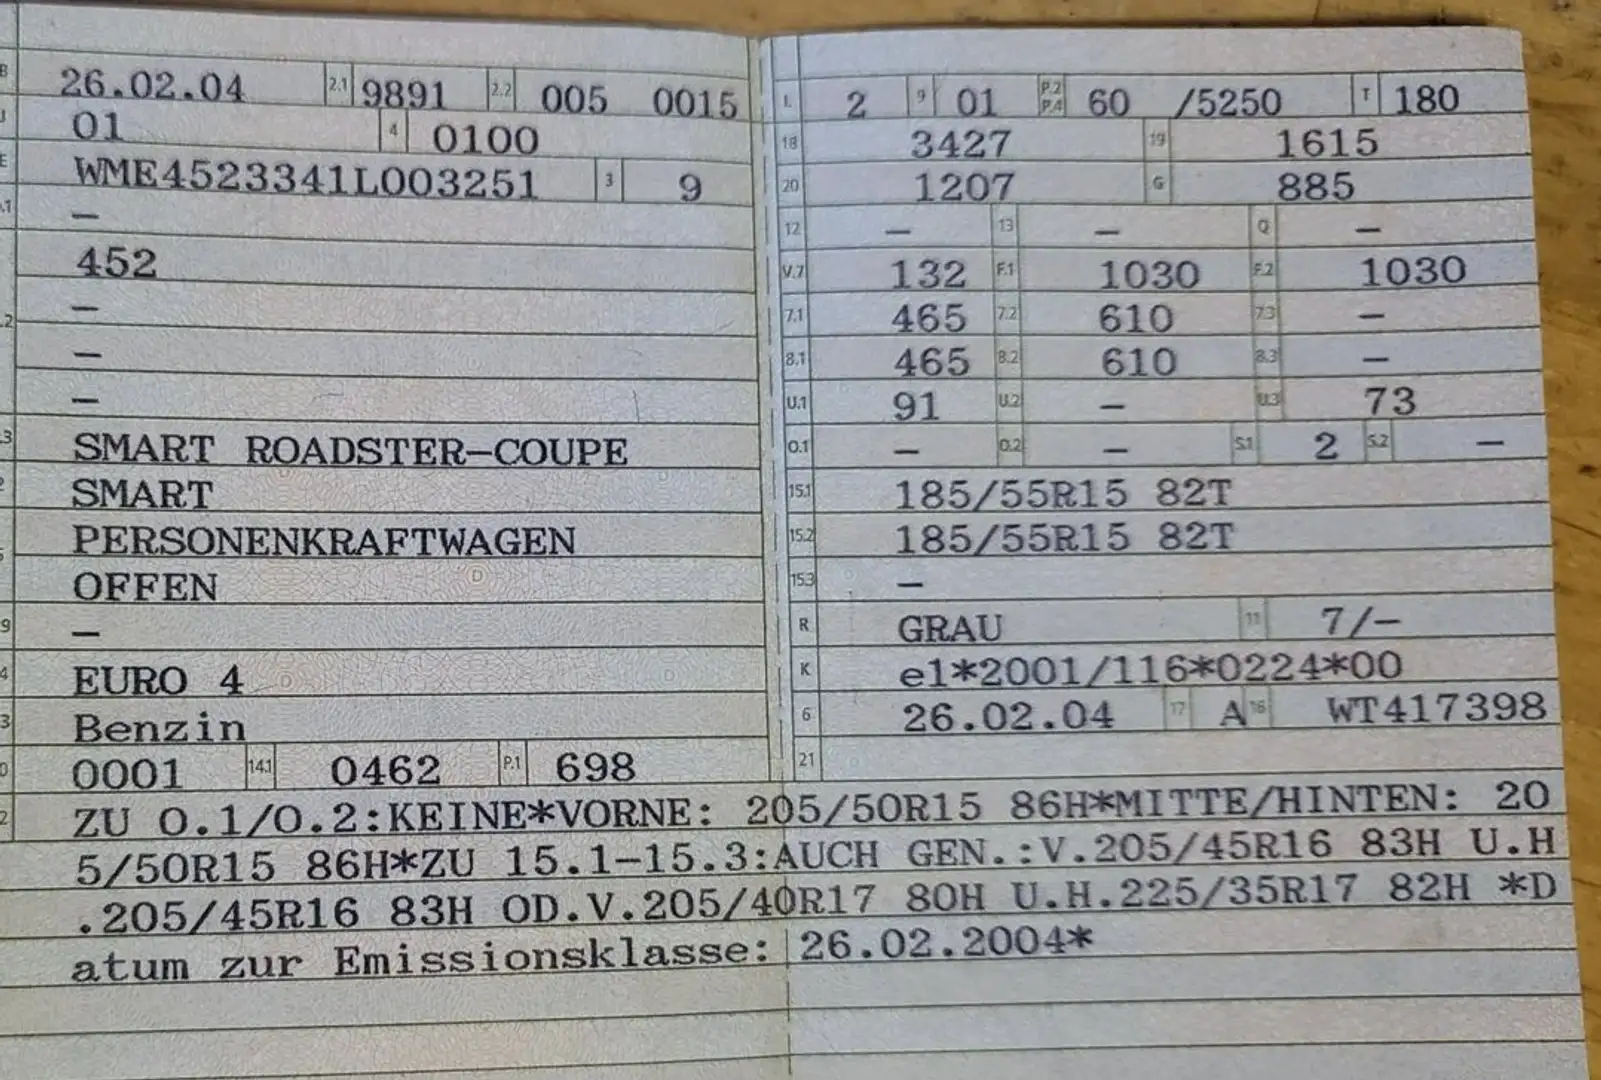 B 26.02.04 2.1 9891 2.2 005 0015
J 01 4 0100
E WME4523341L003251 3 9
.1 –
452
.2 –
–
–
.3 SMART ROADSTER-COUPE
2 SMART
5 PERSONENKRAFTWAGEN
OFFEN
9 –
4 EURO 4
3 Benzin
0 0001 14.1 0462 P.1 698
L 2 9 01 P.2 P.4 60 /5250 T 180
18 3427 19 1615
20 1207 G 885
12 – 13 – Q –
V.7 132 F.1 1030 F.2 1030
7.1 465 7.2 610 7.3 –
8.1 465 8.2 610 8.3 –
U.1 91 U.2 – U.3 73
O.1 – O.2 – S.1 2 S.2 –
15.1 185/55R15 82T
15.2 185/55R15 82T
15.3 –
R GRAU 11 7/–
K e1*2001/116*0224*00
6 26.02.04 17 A 16 WT417398
21
2 ZU O.1/O.2:KEINE*VORNE: 205/50R15 86H*MITTE/HINTEN: 20
5/50R15 86H*ZU 15.1-15.3:AUCH GEN.:V.205/45R16 83H U.H
.205/45R16 83H OD.V.205/40R17 80H U.H.225/35R17 82H *D
atum zur Emissionsklasse: 26.02.2004*